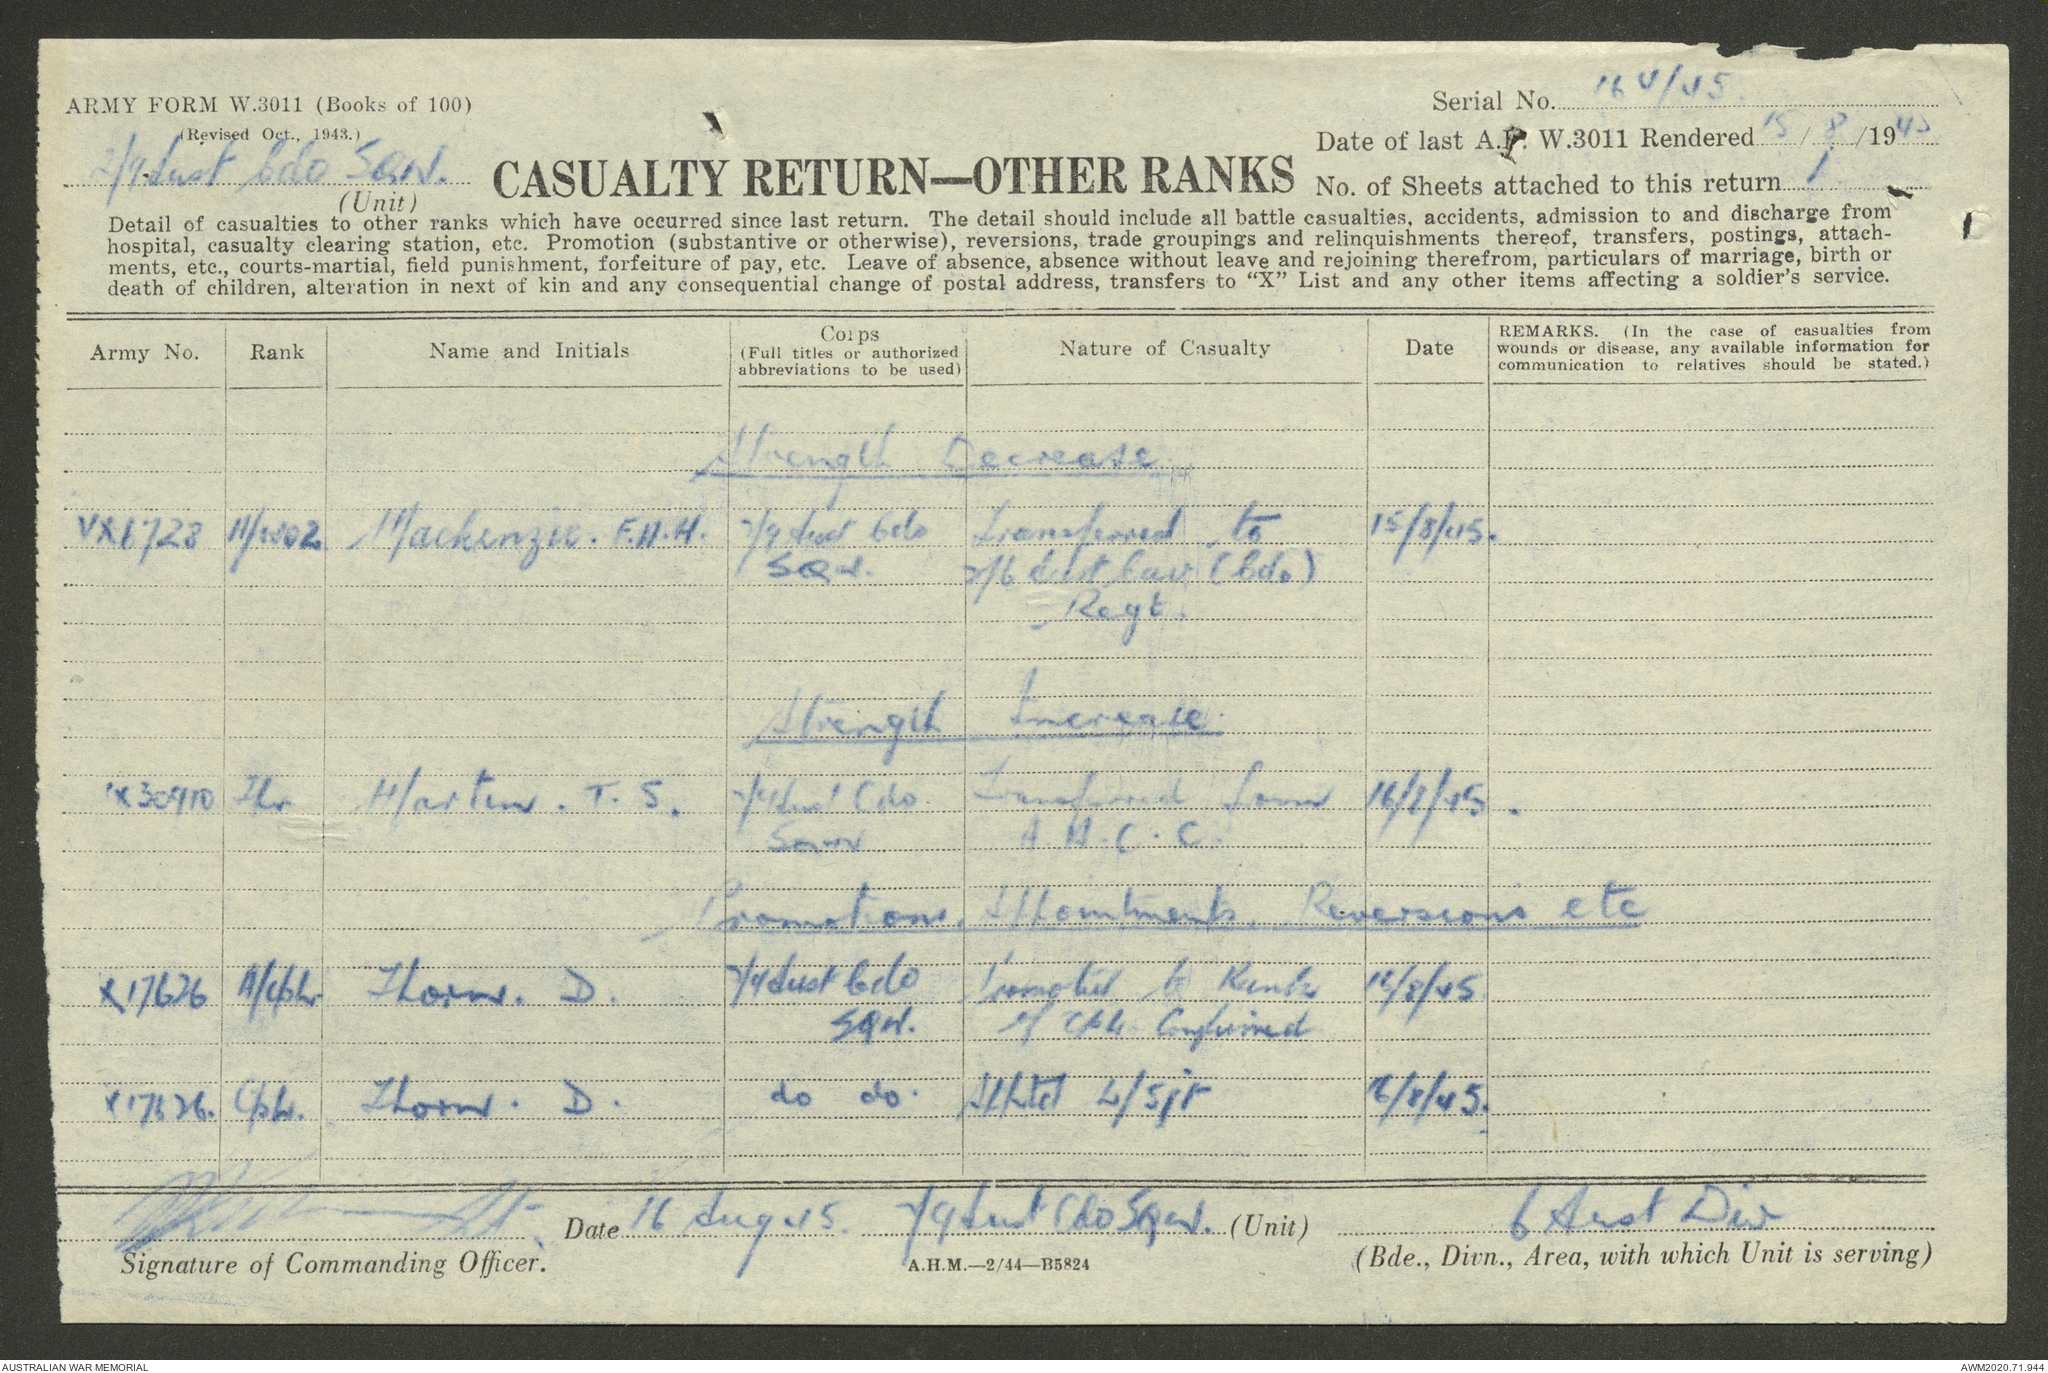 ARMY FORM W.3011 (Books of 100)
(Revised Oct., 1943.)
2/9 Aust Cdo Sqn.
(Unit)
CASUALTY RETURN—OTHER RANKS
Serial No. 164/45
Date of last A.F. W.3011 Rendered 15/8/1945
No. of Sheets attached to this return 1
Detail of casualties to other ranks which have occurred since last return. The detail should include all battle casualties, accidents, admission to and discharge from
hospital, casualty clearing station, etc. Promotion (substantive or otherwise), reversions, trade groupings and relinquishments thereof, transfers, postings, attach-
ments, etc., courts-martial, field punishment, forfeiture of pay, etc. Leave of absence, absence without leave and rejoining therefrom, particulars of marriage, birth or
death of children, alteration in next of kin and any consequential change of postal address, transfers to “X” List and any other items affecting a soldier’s service.
Army No. Rank Name and Initials Corps (Full titles or authorized abbreviations to be used) Nature of Casualty Date REMARKS. (In the case of casualties from wounds or disease, any available information for communication to relatives should be stated.)
Strength Decrease
VX6723 A/WO2 Mackenzie. F.H.H. 2/9 Aust Cdo Transferred to 15/8/45.
Sqn. 2/6 Aust Cav (Cdo)
Regt.
Strength Increase
X30910 Tpr Marten. T. S. 2/9 Aust Cdo Transferred from 16/8/45.
Sqn A.A.C.C.
Promotions, Appointments, Reversions etc
X17626 A/Cpl. Thorn. D. 2/9 Aust Cdo Promoted to Rank 16/8/45
Sqn. of Cpl. Confirmed
X17626. Cpl. Thorn. D. do do. Apptd L/Sjt 16/8/45.
Date 16 Aug 45. 2/9 Aust Cdo Sqn. (Unit) 6 Aust Div
Signature of Commanding Officer. A.H.M.—2/44—B5824 (Bde., Divn., Area, with which Unit is serving)
AUSTRALIAN WAR MEMORIAL AWM2020.71.944